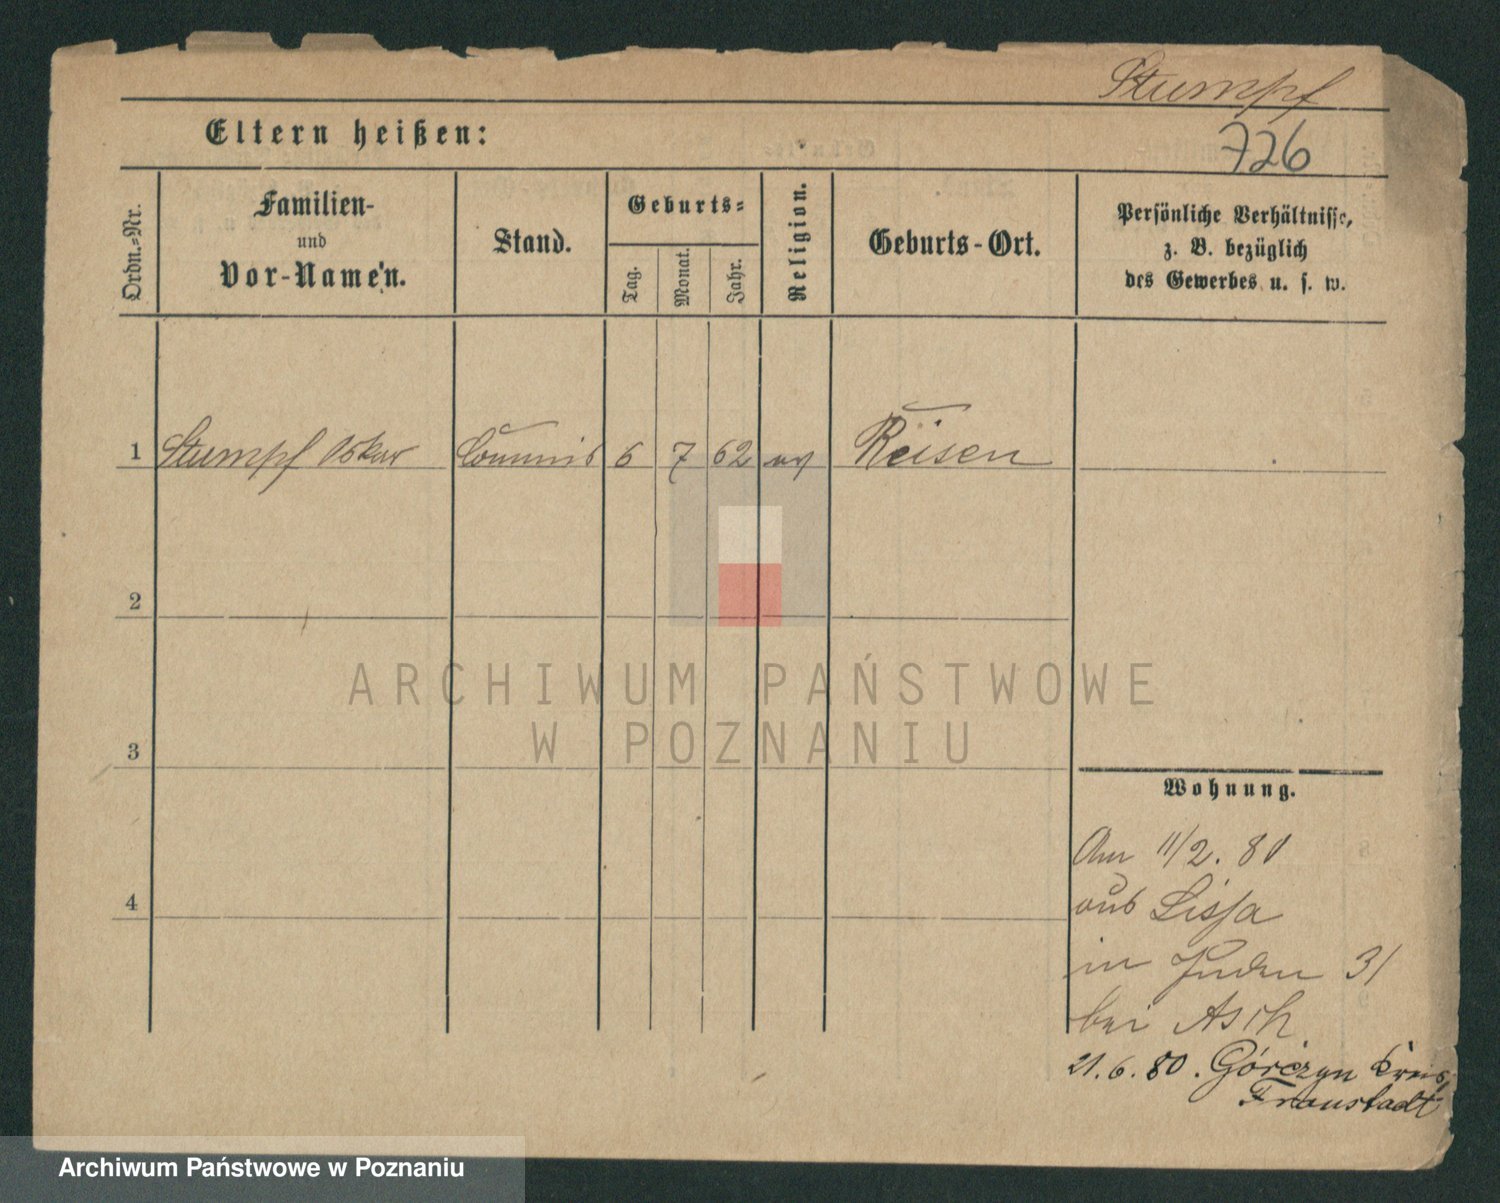 Stumpf
Eltern heißen:
726
Ordn.=Nr.
Familien-
und
Vor-Namen.
Stand.
Geburts=
Tag.
Monat.
Jahr.
Religion.
Geburts-Ort.
Persönliche Verhältnisse,
z. B. bezüglich
des Gewerbes u. s. w.
1 Stumpf Oskar Commis 6 7 62 ev Reisen
2
3
4
ARCHIWUM PAŃSTWOWE
W POZNANIU
Wohnung.
Am 11/2. 80
aus Lissa
in Juden 31
bei Asch
21. 6. 80. Górczyn Kreis
Fraustadt
Archiwum Państwowe w Poznaniu